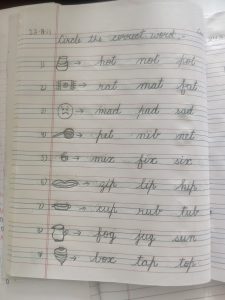 Circle the correct word.
1) → hot not pot
2) → rat mat fat
3) → mad pad sad
4) → pet nib net
5) → mix fix six
6) → zip lip hip
7) → cup rub tub
8) → fog jug sun
9) → box tap top